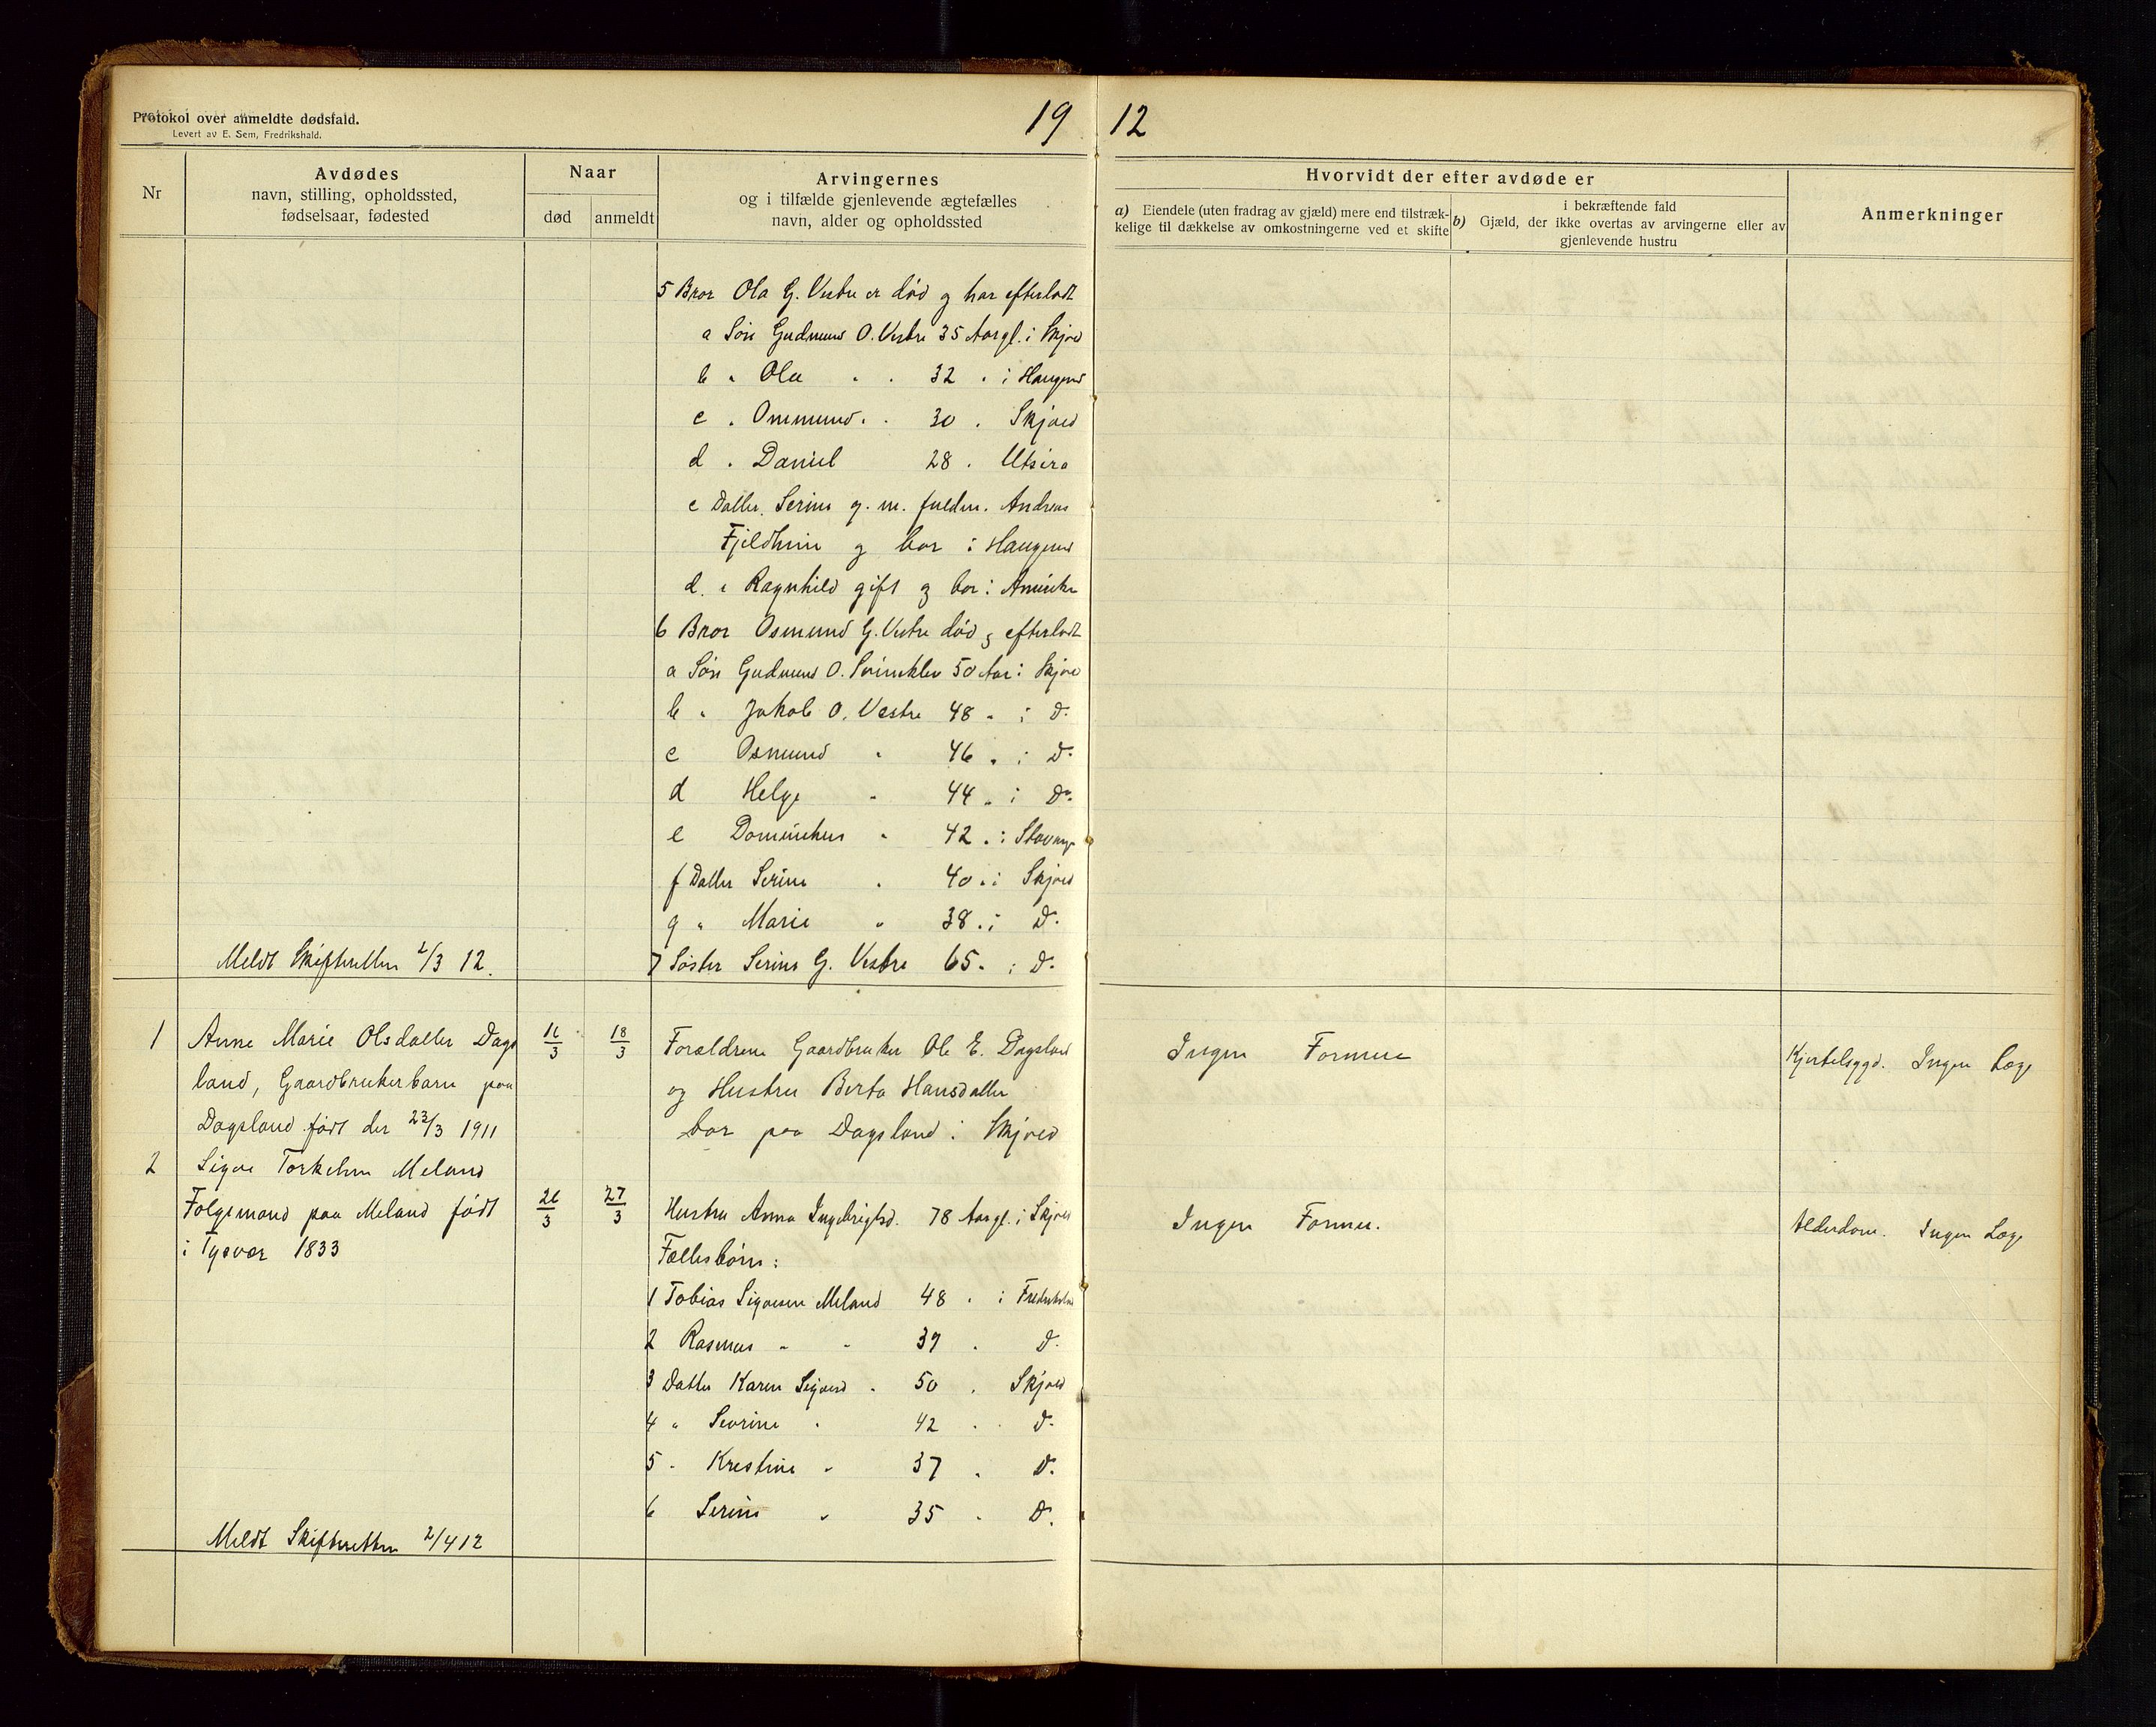 Protokol over anmeldte dødsfald.
Levert av E. Sem, Fredrikshald.
19 12
Nr
Avdødes
navn, stilling, opholdssted,
fødselsaar, fødested
Naar
død
anmeldt
Arvingernes
og i tilfælde gjenlevende ægtefælles
navn, alder og opholdssted
Hvorvidt der efter avdøde er
a) Eiendele (uten fradrag av gjæld) mere end tilstræk-
kelige til dækkelse av omkostningerne ved et skifte
i bekræftende fald
b) Gjæld, der ikke overtas av arvingerne eller av
gjenlevende hustru
Anmerkninger
5 Bror Ola G. Vestre er død og har efterladt
a Søn Gudmund O. Vestre 35 Aar gl. i Skjold
b " Ola " " 32 " i Haugesund
c " Ommund " " 30 " Skjold
d " Daniel 28 " Utsira
e Datter Serine g. m. Andreas
Fjeldheim og bor i Haugesund
d. " Ragnhild gift og bor i Amerika
6 Bror Osmund G. Vestre død og efterladt
a Søn Gudmund O. 50 Aar i Skjold
b " Jakob O. Vestre 48 " i Do
c Osmund " 46 " i Do
d Helge " 44 " i Do
e Dominikus " 42 " i Stavanger
f Datter Serine " 40 " i Skjold
g " Marie " 38 " i Do
7 Søster Serine G. Vestre 65 " i Do
Meldt Skifteretten 2/3 12.
1 Anne Marie Olsdatter Dags
land, Gaardbrukerbarn paa
Dagsland født den 23/3 1911
16/3 18/3
Forældrene Gaardbruker Ole E. Dagsland
og Hustru Berta Hansdatter
bor paa Dagsland i Skjold
Ingen Formue
Kjertelsygd. Ingen Læge
2 Sigve Torkelsen Meland
Følgemand paa Meland født
i Tysvær 1833
26/3 27/3
Hustru Anna Ingebrigtsd. 78 Aar gl. i Skjold
Fællesbørn:
1 Tobias Sigvesen Meland 48 " i Fredrikstad
2 Rasmus " " 39 " Do
3 Datter Karen Sigvesd " 50 " Skjold
4 " Sevrine " 42 " " Do
5 " Krestine " 37 " Do
6 Serine " 35 " Do
Ingen Formue.
Alderdom. Ingen Læge
Meldt Skifteretten 2/4 12